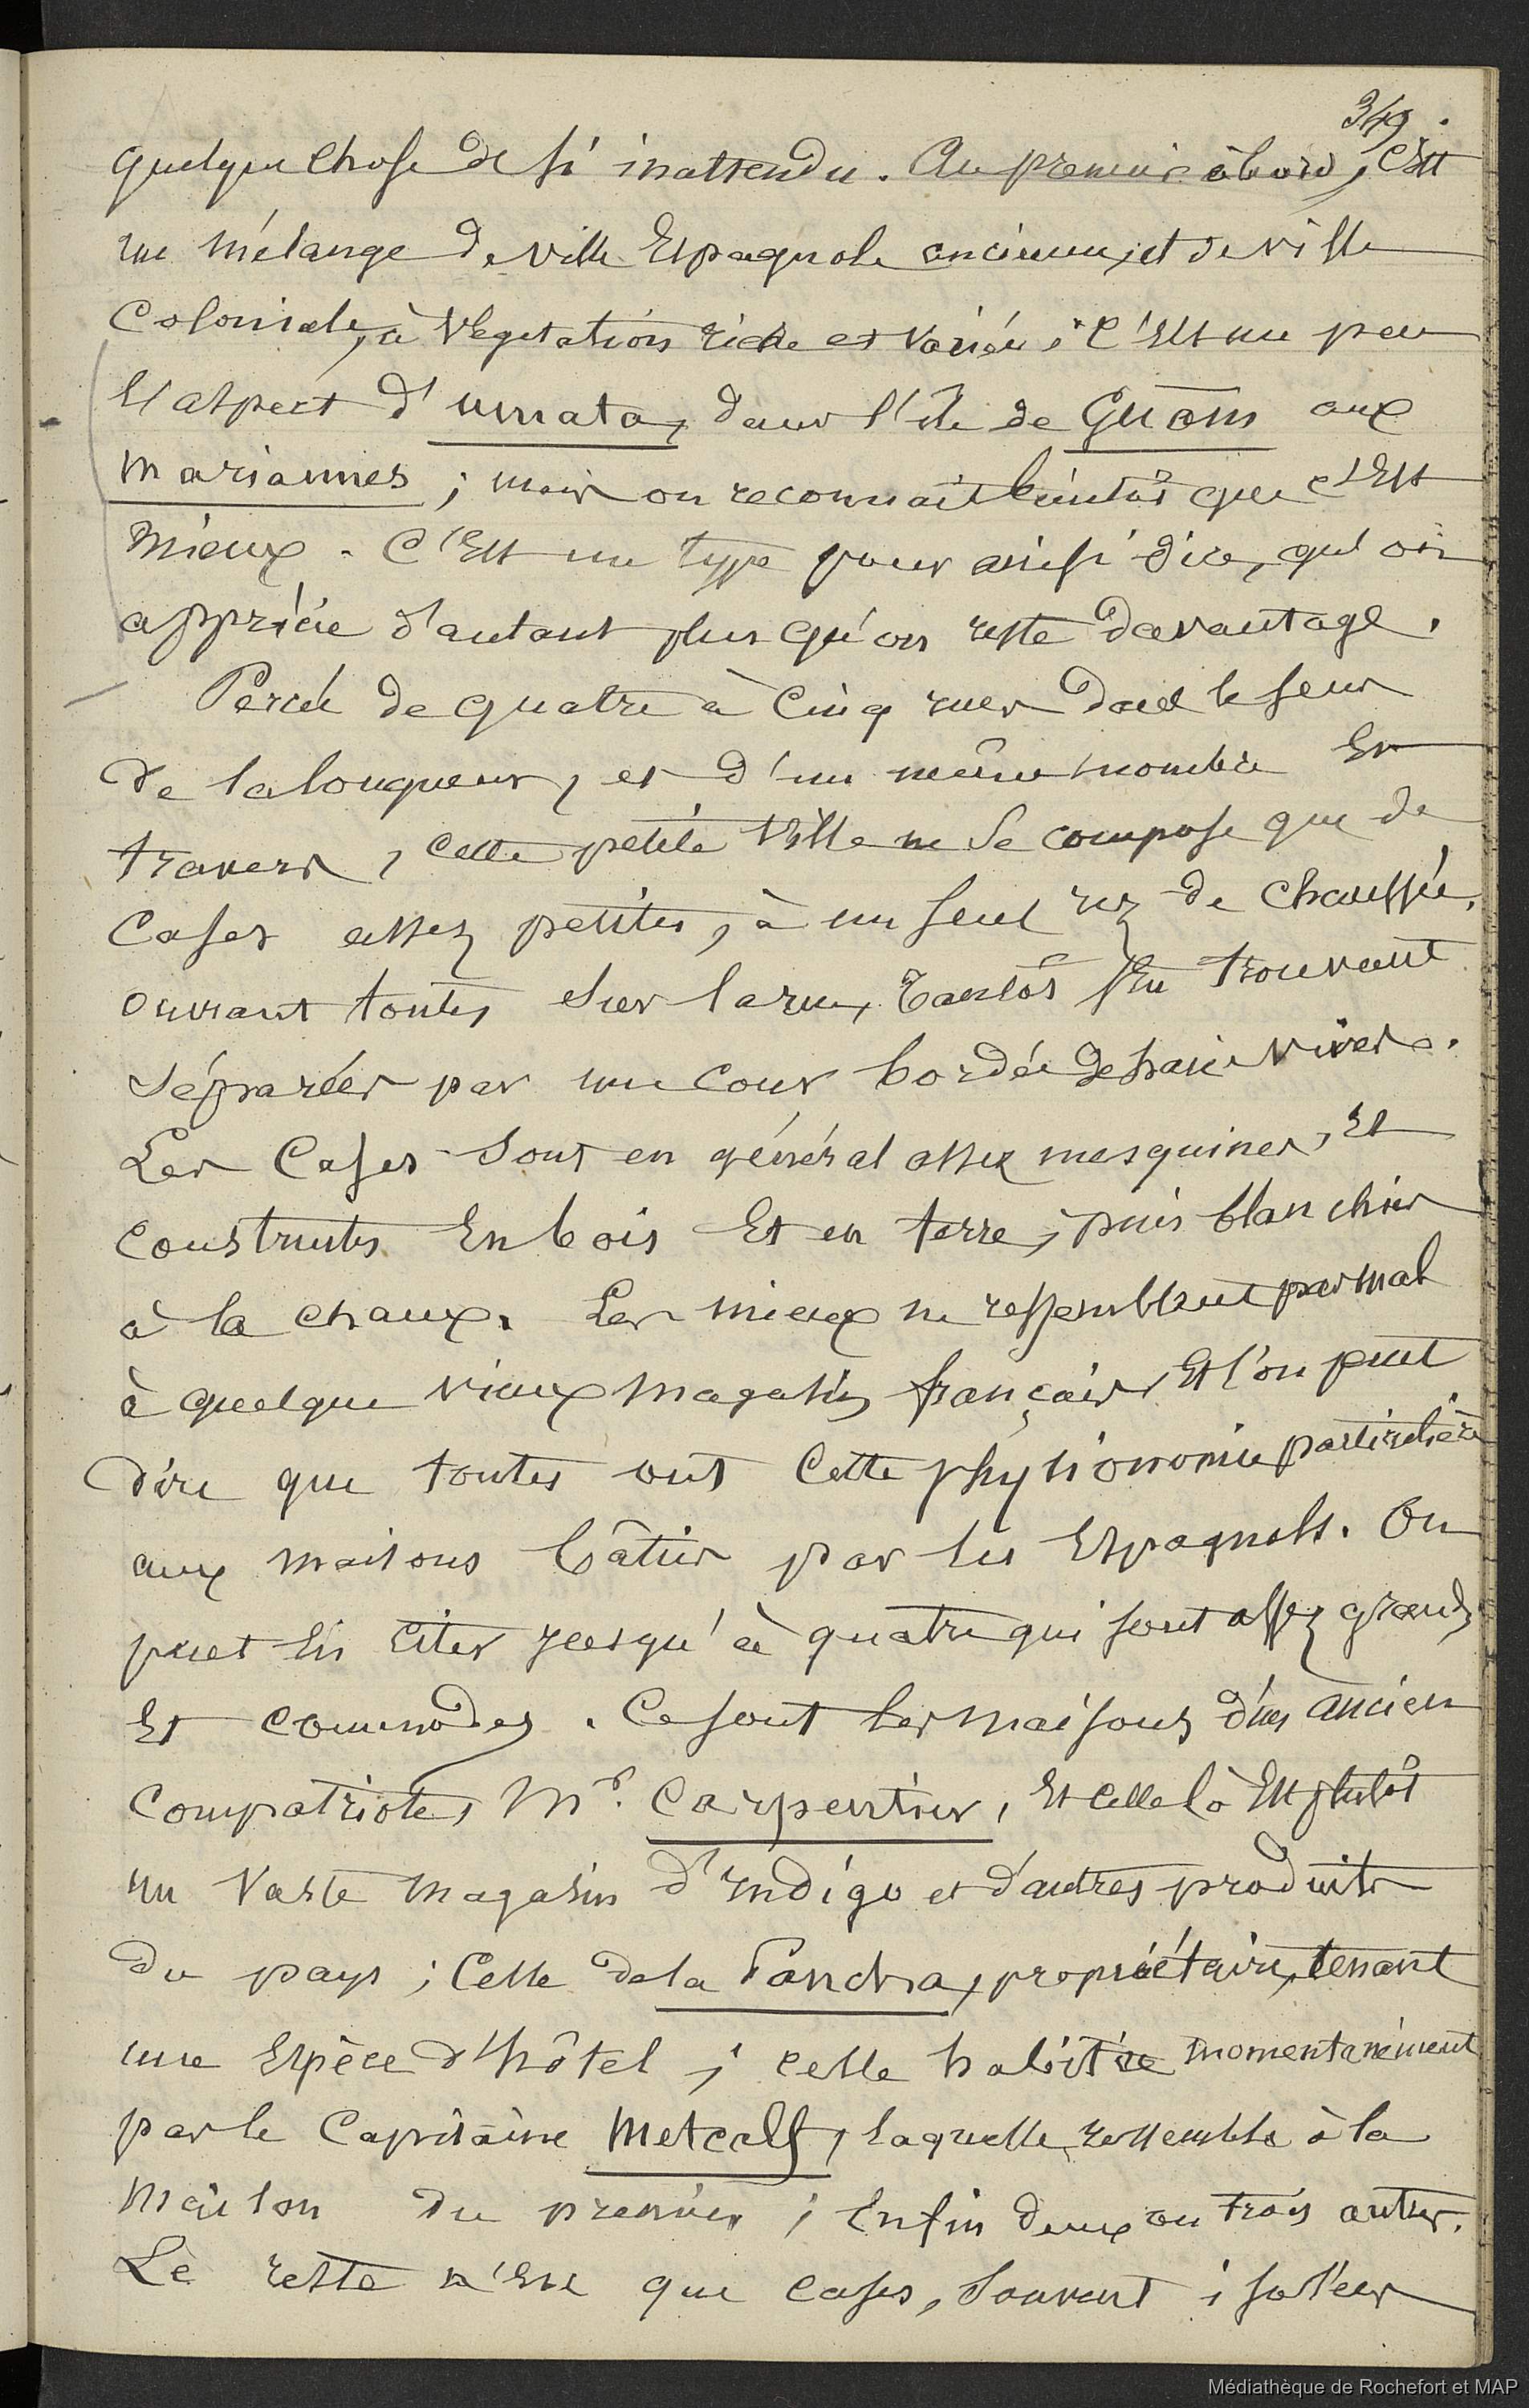 349.
quelque chose de si inattendu. Au premier abord, c'est
un mélange de ville Espagnole ancienne, et de ville
Coloniale, à végétation riche et variée ; c'est un peu
l'aspect d'umata, dans l'île de Guam aux
mariannes ; mais on reconnait bientôt que c'est
mieux. C'est un type pour ainsi dire, qu'on
apprécie d'autant plus qu'on reste davantage.
Percée de quatre à cinq rues dans le sens
de la longueur, et d'un même nombre en
travers, cette petite ville ne se compose que de
cases assez petites, à un seul rez de chaussée,
ouvrant toutes sur la rue, tantôt se trouvant
séparées par une cour bordée de haies vives.
Les Cases sont en général assez mesquines, et
construites en bois et en terre, puis blanchies
à la chaux. Les mieux ne ressemblent pas mal
à quelque vieux magasin français, et l'on peut
dire que toutes ont cette physionomie particulière
aux maisons bâties par les Espagnols. On
peut en citer jusqu'à quatre qui sont assez grands
et commodes. Ce sont les maisons d'un ancien
compatriote, Mr. Carpentier, et celle là est plutôt
un vaste magasin d'indigo et d'autres produits
du pays ; celle de la Pancha, propriétaire, tenant
une espèce d'hôtel ; celle habitée momentanément
par le Capitaine Metcalf, laquelle ressemble à la
maison du premier ; enfin deux ou trois autres.
Le reste n'est que cases, souvent isolées
Médiathèque de Rochefort et MAP